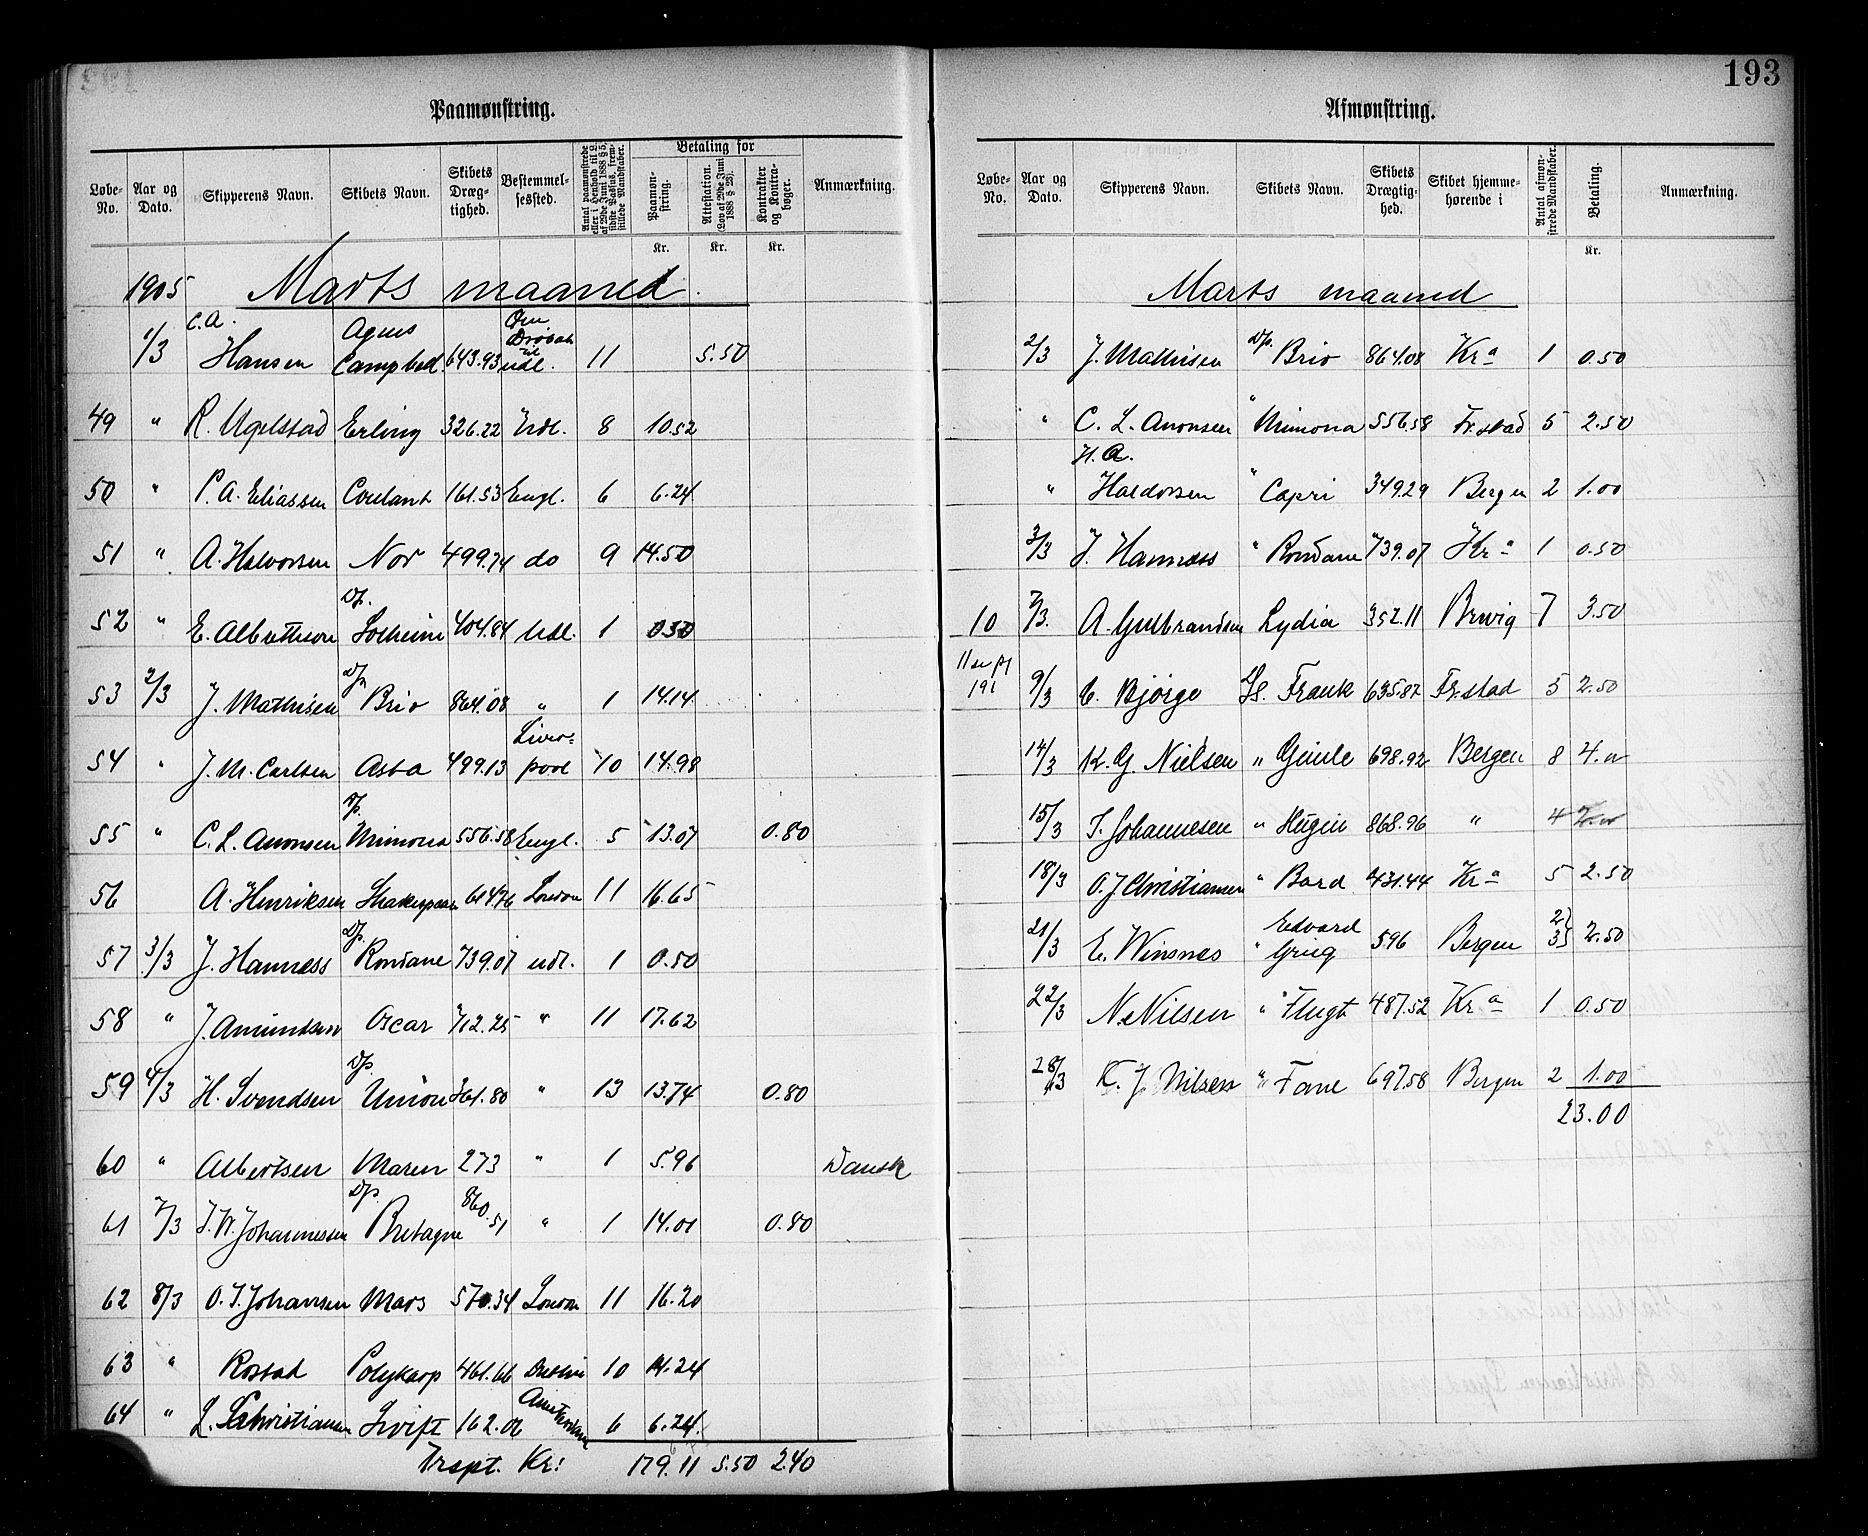 193
Paamønstring.
Løbe-No. | Aar og Dato. | Skipperens Navn. | Skibets Navn. | Skibets Dræg-tighed. | Bestemmel-sessted. | Antal paamønstrede eller i Henhold til L. af 29de Juni 1888 § 5, sidste Passus, frem-stillede Mandskaber. | Betaling for | Paamøn-string. | Attestation. (Lov af 29de Juni 1888 § 23). | Kontrakter og Kontra-bøger. | Anmærkning.
Kr. | Kr. | Kr.
1905 Marts maaned.
1/3 C. A. Hansen | Agnes Campbel | 643.93 | Om Drøbak til udl. | 11 | 5.50
49 | " | R. Ugelstad | Erling | 326.22 | Udl. | 8 | 10.52
50 | " | P. A. Eliassen | Coulant | 161.53 | Engl. | 6 | 6.24
51 | " | A. Halvorsen | Nor | 499.74 | do | 9 | 14.50
52 | " | E. Albertheson | Dp. Solheim | 404.84 | Udl. | 1 | 0.50
53 | 2/3 | J. Mathisen | Dp. Brio | 864.08 | " | 1 | 14.14
54 | " | J. M. Carlsen | Asta | 499.13 | Liver=pool | 10 | 14.98
55 | " | C. L. Aronsen | Dp. Mimona | 556.58 | Engl. | 5 | 13.07 | 0.80
56 | A. Henriksen | Shakespeare | 614.76 | London | 11 | 16.65
57 | 3/3 | J. Hanness | Dp. Rondane | 739.07 | udl. | 1 | 0.50
58 | " | J. Amundsen | Oscar | 712.25 | " | 11 | 17.62
59 | 4/3 | H. Svendsen | Dp. Union | 361.80 | " | 13 | 13.74 | 0.80
60 | " | Albertsen | Maren | 273 | " | 1 | 5.96 | Dansk
61 | 7/3 | J. W. Johannessen | Dp. Bretagne | 860.51 | " | 1 | 14.01 | 0.80
62 | 8/3 | O. J. Johansen | Mars | 570.34 | London | 11 | 16.20
63 | " | Rostad | Polykarp | 461.66 | Dublin | 10 | 14.24
64 | " | L. Christiansen | Svift | 162.06 | Amsterdam | 6 | 6.24
Trspt. Kr: 179.11 | 5.50 | 2.40
Afmønstring.
Løbe-No. | Aar og Dato. | Skipperens Navn. | Skibets Navn. | Skibets Drægtig-hed. | Skibet hjemme-hørende i | Antal afmøn-strede Mandskaber. | Betaling. | Anmærkning.
Kr.
Marts maaned
2/3 | J. Mathisen | Dp. Brio | 864.08 | Kra | 1 | 0.50
" | C. L. Aronsen | " Mimona | 556.58 | Fr.stad | 5 | 2.50
" | H. A. Haldorsen | " Capri | 349.29 | Bergen | 2 | 1.00
3/3 | J. Hanness | " Rondane | 739.07 | Kra | 1 | 0.50
10 | 7/3. | A. Gulbrandsen | Lydia | 352.11 | Brevig | 7 | 3.50
11 se pg 191 | 9/3 | C. Bjørge | Frank | 635.87 | Fr.stad | 5 | 2.50
14/3 | K. G. Nielsen | " Gimle | 698.92 | Bergen | 8 | 4.00
15/3 | J. Johannesen | " Hugin | 868.96 | " | 4
18/3 | O. J. Christiansen | " Bard | 431.44 | Kra | 5 | 2.50
21/3 | E. Winsnes | " Edvard Grieg | 596 | Bergen | 2 3 | 2.50
22/3 | N. Nilsen | " Flugt | 487.52 | Kra | 1 | 0.50
28/3 | K. J. Nilsen | " Fane | 697.58 | Bergen | 2 | 1.00
23.00